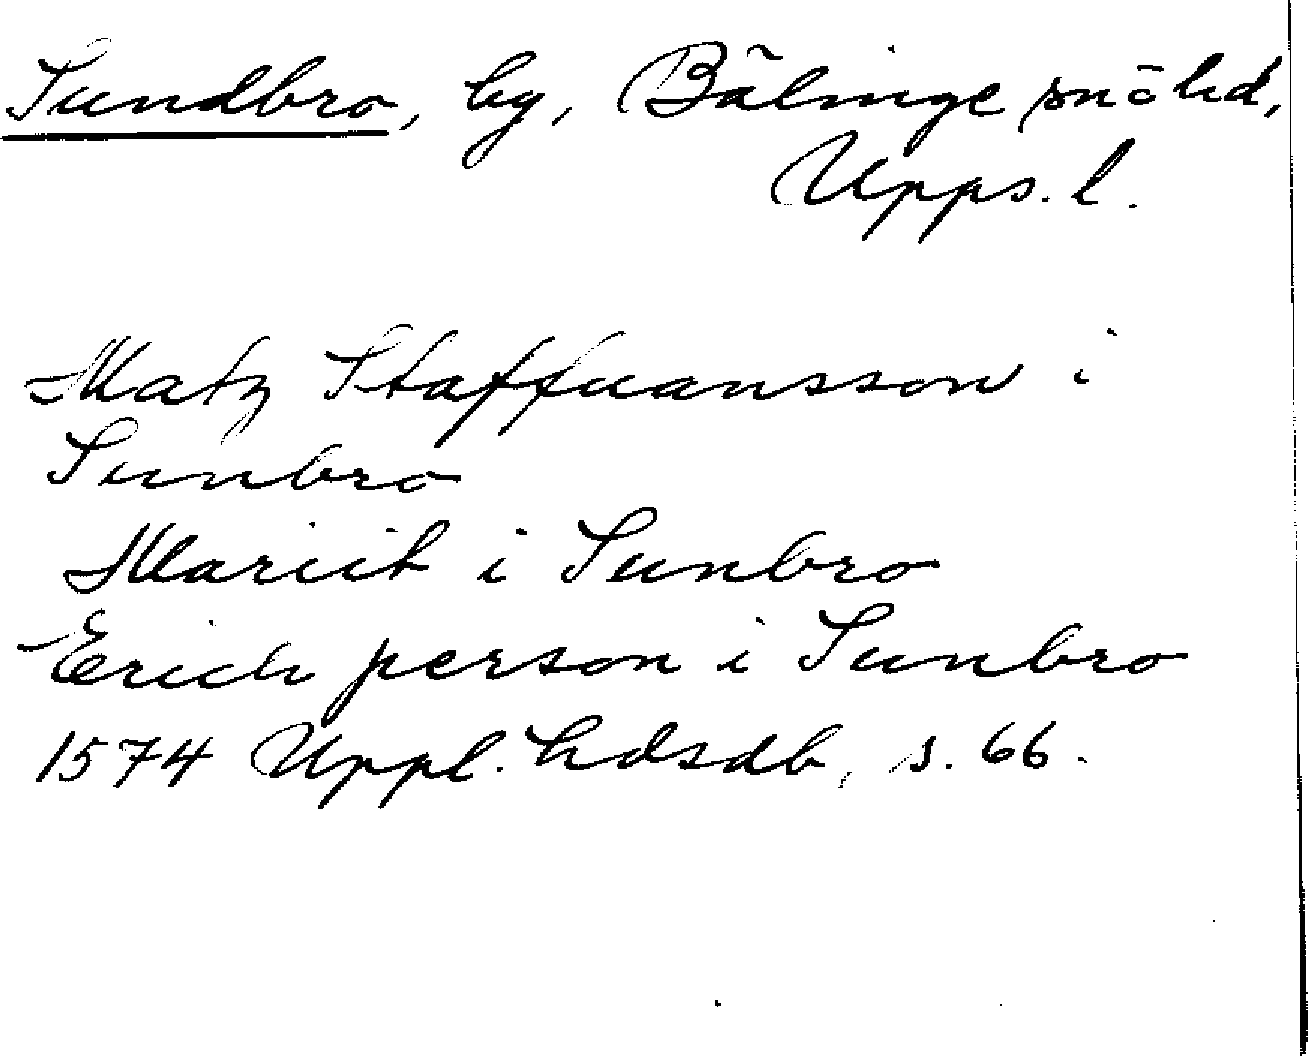 Sundbro, by, Bälinge sn o hd,
Upps. l.
Matz Staffuansson i
Sunbro
Mariit i Sunbro
Erich person i Sunbro
1574 Uppl. hdsdb, s. 66.